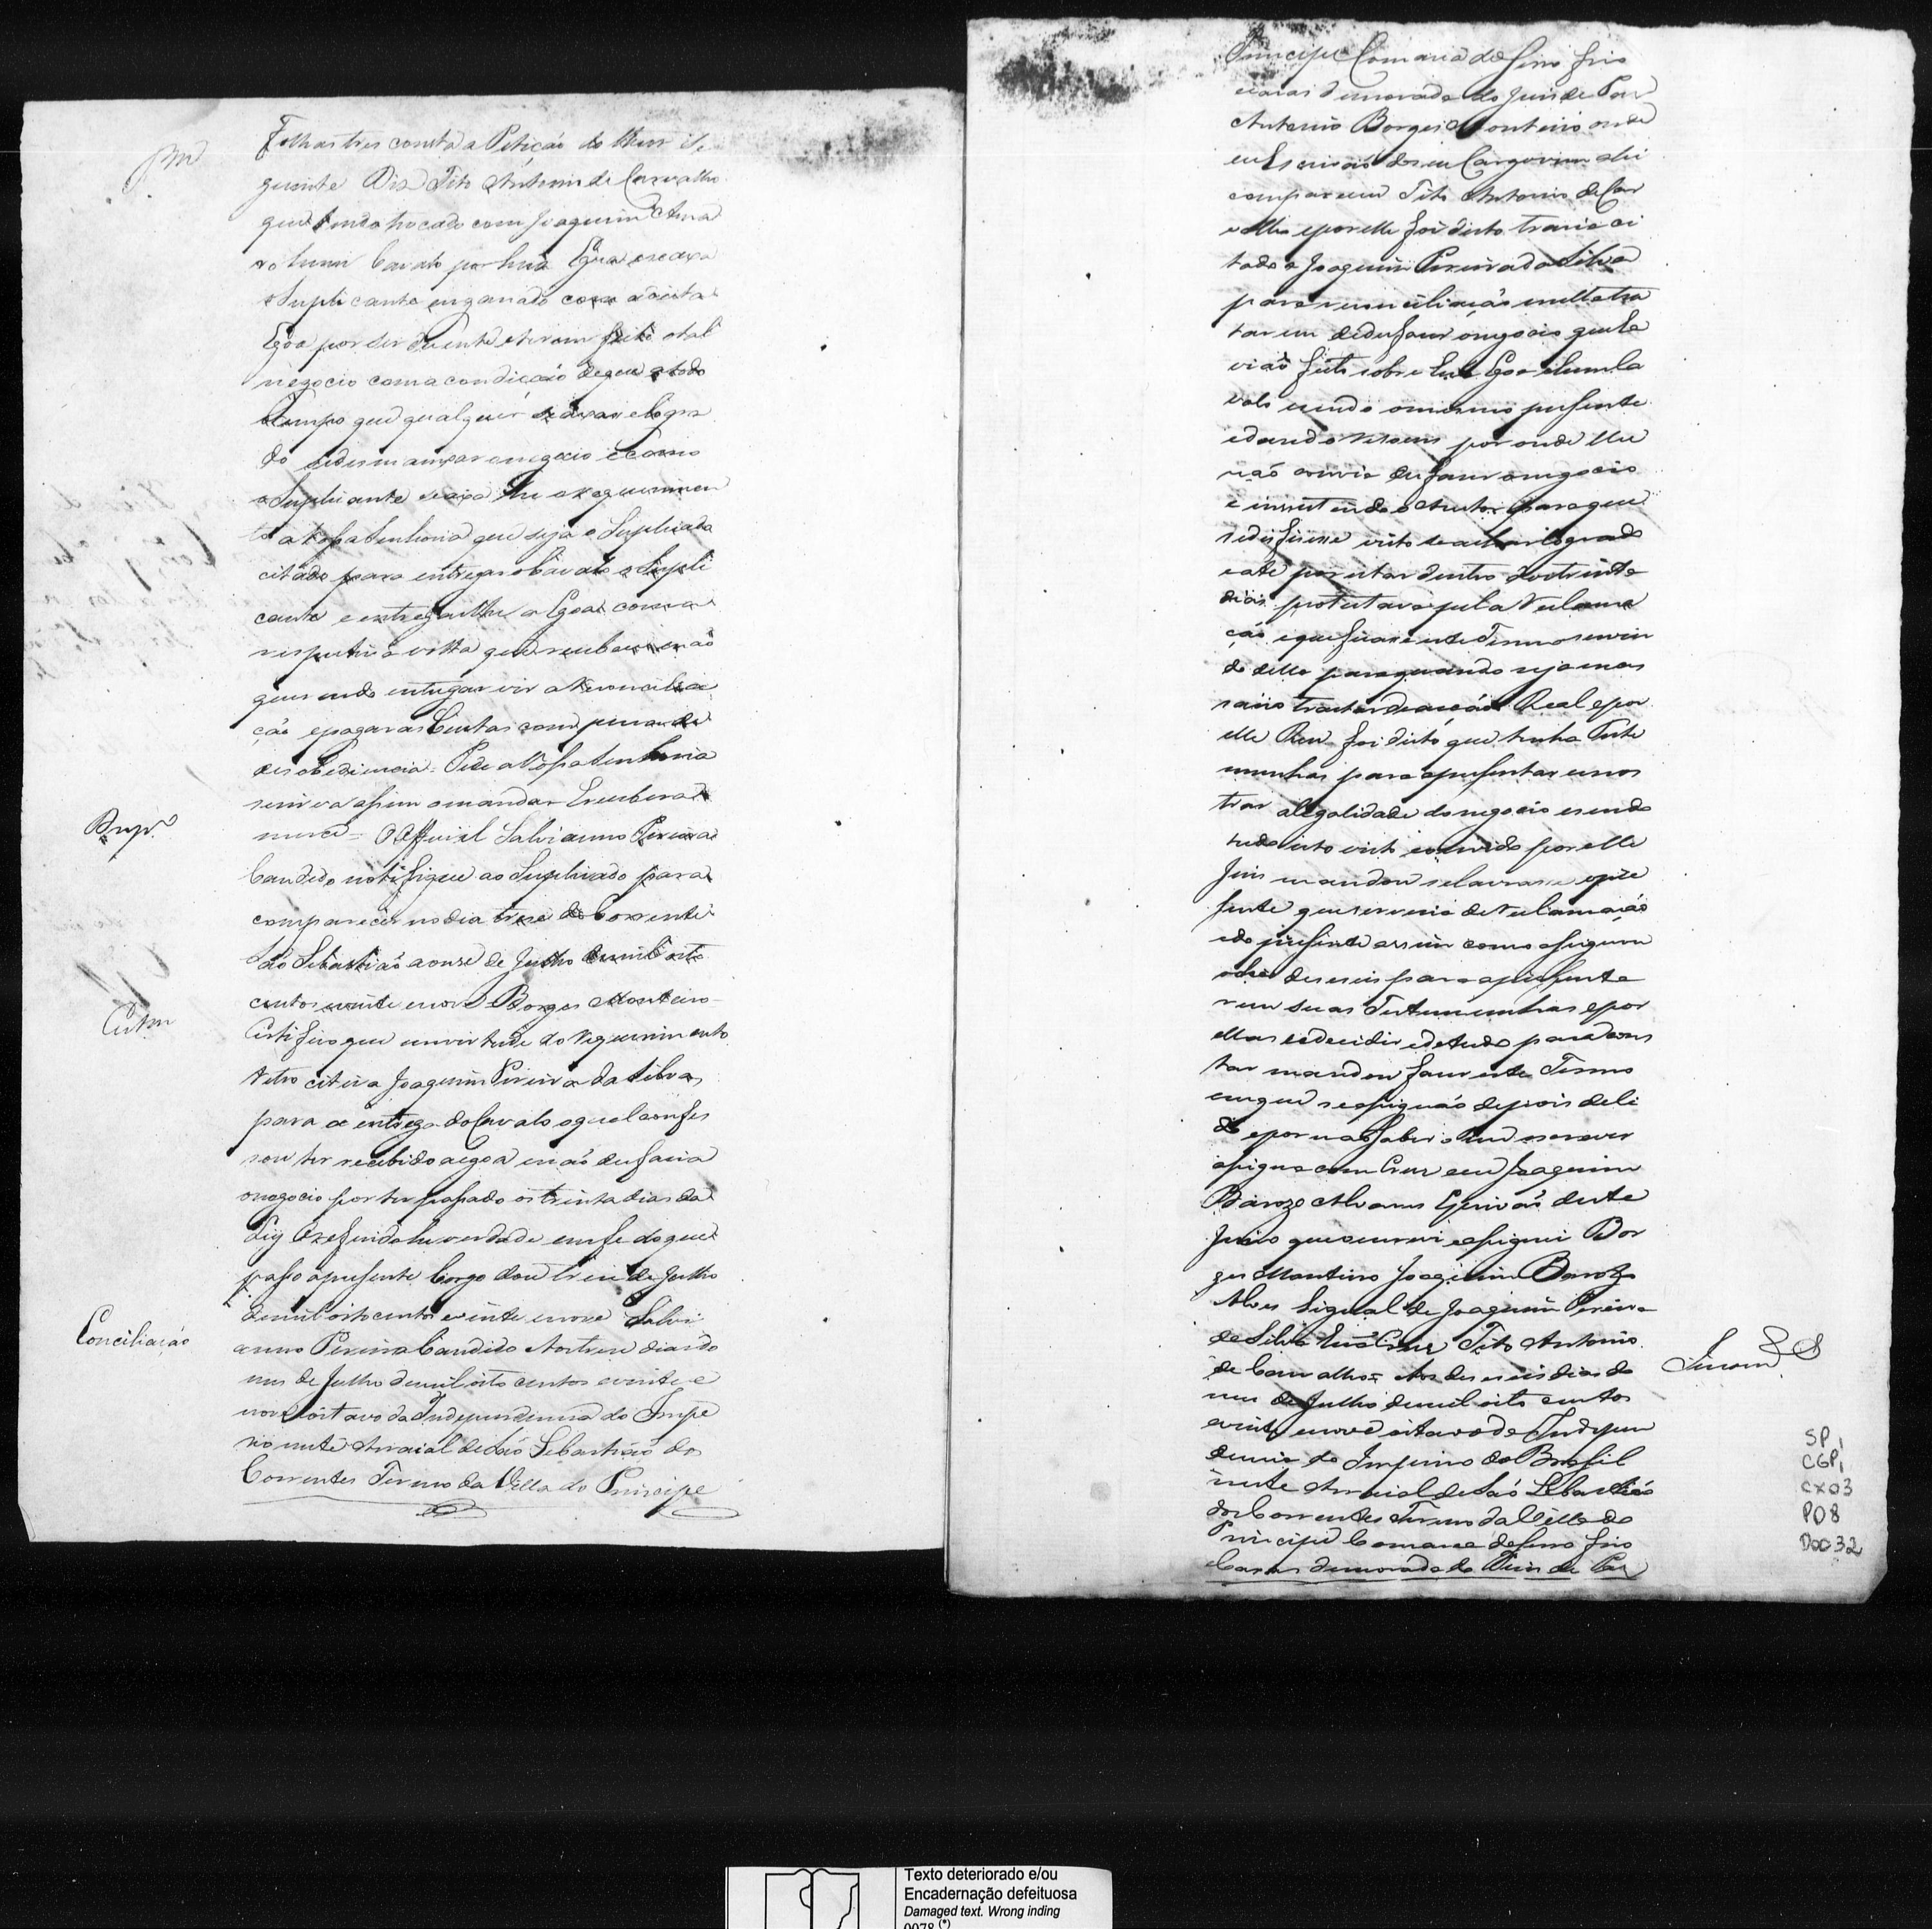 Folhas tres consta a Petição do theor se
guinte Diz Tito Antonio de Carvalho
que tendo trocado com Joaquim
hum Cavalo por huã Egoa seaxa
o Suplicante enganado com a dita
Egoa por ser doente e terem feito o tal
negocio com a condicção de que a todo
tempo que qualquer se axase logra
do sedesmanxar o negocio e como
o Suplicante seaxa
a Vossa Senhoria que seja o Suplicado
citado para entregar o Cavalo o Supli
cante e entregarlhe a Egoa com a
respectiva volta que recebeu e não
querendo entregar vir a Reconcilia
ção e pagar as Custas com pena de
desobediencia = Pede a Vossa Senhoria
seirva assim o mandar E recebera
merce = O Official Salvianno Pereira
Candido notifique ao Suplicado para
comparecer no dia treze do Corrente
São Sebastião aonze de Julho de mil oito
centos evinte enove = Borges Monteiro
Certifico que em virtude do Requerimento
retro citei a Joaquim Pereira da Silva
para a entrega do Cavalo o qual confes
sou ter recebido aegoa enão desfazia
onegocio por ter passado os trinta dias da
Ley Oreferido he verdade em fe do que
passo apresente Cargo dou treze de Julho
demil oito centos evinte enove Salvi
anno Pereira Candido Aos treze dias do
mes de Julho demil oito centos evinte e
nove oitavo da Independencia do Impe
rio neste Arraial de São Sebastião dos
Correntes Termo da Villa do Principe
Certam
Conciliação
Principe Comarca do Serro frio
em casas demorada do Juis de Paz
Antonio Borges Monteiro onde
eu Escrivão de seu Cargo vim ahi
compareceu Tito Antonio de Car
valho e por elle foi disto trazia ci
tado a Joaquim Pereira da Silva
para reconciliação e nella tra
tarem dedesfazer onegocio que ha
vião feito sobre huã Egoa e hum Ca
valo sendo o mesmo presente
e dando rezoens por onde lhe
não convia desfazer onegocio
e insistindo o Autor para que
sedesfizesse visto se achar logrado
eate por estar dentro dos trinta
dias protestava pela Reclama
ção e que ficase este Termo servin
do delle para quando seja neces
sario tractar de acção Real e por
elle Reu foi disto que tinha Teste
munhas para apresentar e mos
trar alegalidade do negocio e sendo
tudo isto visto e ouvido por elle
Juis mandou selavrase o pre
sente que servirá de reclamação
e do presente assim como assignou
o dia deseseis para apresenta
rem suas Testemunhas e por
ellas sedecidir edetudo para cons
tar mandou fazer este Termo
em que se assignão depois deli
do e por não saber o Reu escrever
assigna com Cruz eeu Joaquim
Barozo Alvares Escrivão deste
Juizo que escrevi e assignei Bor
ges Monteiro Joaquim Barozo
Alves Signal de Joaquim Pereira
da Silva huã Cruz Tito Antonio
de Carvalho = Aos deseseis dias do
mes de Julho demil oito centos
evinte enove oitavo da Indepen
dencia do Imperio do Brasil
neste Arraial de São Sebastião
dos Correntes Termo da Villa do
Principe Comarca do Serro frio
Casas demorada do Juis de Paz
SP
CGP1
CX03
P08
Doc 32
Texto deteriorado e/ou
Encadernação defeituosa
Damaged text. Wrong inding
0078 (*)